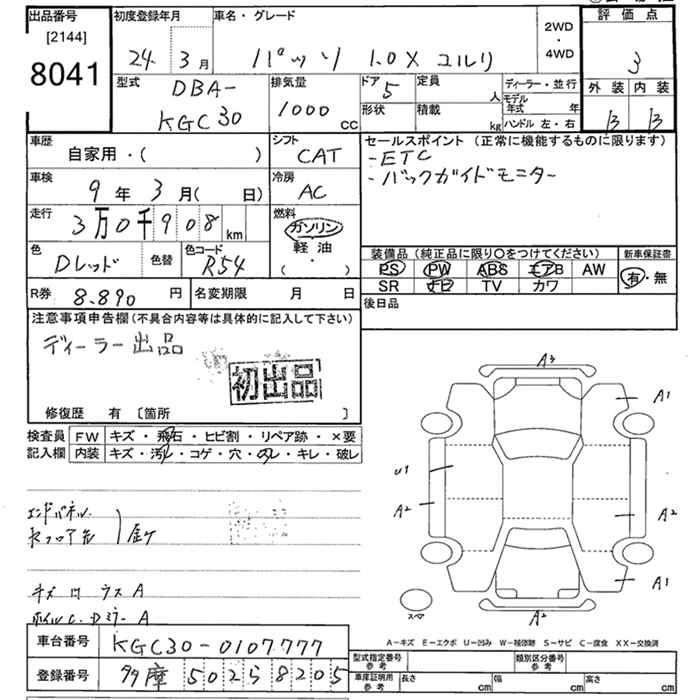 出品番号
[2144]
8041
初度登録年月
24 3月
車名・グレード
パッソ 1.0X ユルリ
2WD
・
4WD
評価点
3
外装 内装
B B
型式
DBA-
KGC30
排気量
1000 cc
ドア
5
定員
人
形状
積載
kg
ディーラー・並行
モデル年式 年
ハンドル 左・右
車歴
自家用・( )
シフト
CAT
セールスポイント (正常に機能するものに限ります)
-ETC
-バックガイドモニター
車検
9年3月( 日)
冷房
AC
走行
3万0千908 km
燃料
ガソリン
軽油
( ・ )
色
Dレッド
色替
色コード
R54
装備品 (純正品に限り〇をつけてください)
PS PW ABS エアB AW
SR ナビ TV カワ
新車保証書
有・無
R券
8.890 円
名変期限 月 日
後日品
注意事項申告欄 (不具合内容等は具体的に記入して下さい)
ディーラー出品
初出品
修復歴 有 [箇所 ]
検査員記入欄
FW キズ・飛石・ヒビ割・リペア跡・×要
内装 キズ・汚レ・コゲ・穴・スレ・キレ・破レ
エンドパネル
キズ ガラス A
A
A3
A1
U1
A2
A2
A1
A2
スペア
A-キズ E-エクボ U-凹み W-補修跡 S-サビ C-腐食 XX-交換済
車台番号
KGC30-0107777
登録番号
多摩 502 5 8205
型式指定番号 参考
類別区分番号 参考
車庫証明用 参考
長さ cm
幅 cm
高さ cm